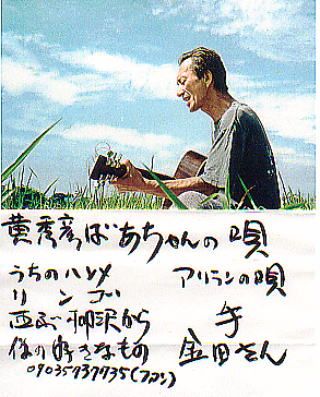 黄秀彦ばあちゃんの唄
うちのハンメ アリランの唄
リンゴ
西武柳沢から 手
僕の好きなもの 金田さん
09035737735(ファン)